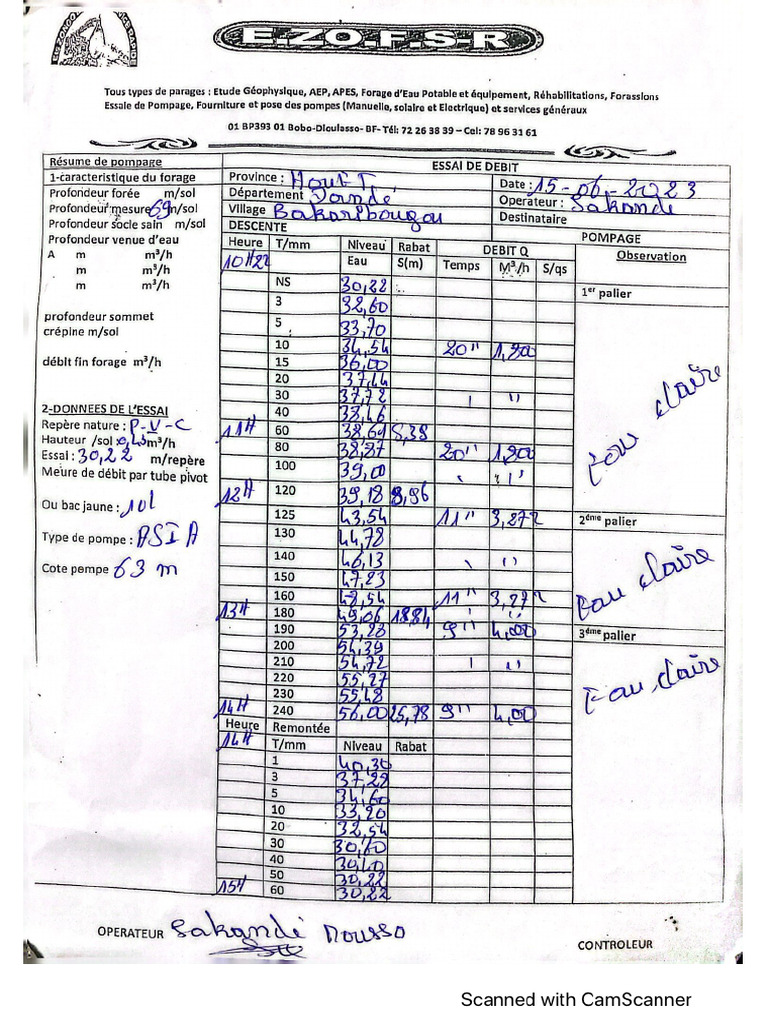 E.Z.O.F.S-R
Tous types de parages : Etude Géophysique, AEP, APES, Forage d'Eau Potable et équipement, Réhabilitations, Forassions
Essale de Pompage, Fourniture et pose des pompes (Manuelle, solaire et Electrique) et services généraux
01 BP393 01 Bobo-Dioulasso- BF- Tél: 72 26 38 39 – Cel: 78 96 31 61
Résume de pompage
ESSAI DE DEBIT
1-caracteristique du forage
Province : Haut T
Date : 15-06-2023
Profondeur forée m/sol
Département
Operateur : Sakandé
Profondeur mesure 69 m/sol
Village Bakaribougou
Destinataire
Profondeur socle sain m/sol
DESCENTE
POMPAGE
Profondeur venue d'eau
Heure T/mm Niveau Eau Rabat S(m) DEBIT Q Temps M³/h S/qs Observation
A m m³/h
m m³/h
m m³/h
10H22
NS 30,22 1er palier
3 32,60
5 33,70
profondeur sommet
crépine m/sol
10 34,54 20'' 1,800
15 36,00
débit fin forage m³/h
20 37,44
30 37,72 ''
40 38,46
Eau claire
2-DONNEES DE L'ESSAI
Repère nature : P-V-C
11H 60 38,61 8,39
Hauteur /sol 0,43 m³/h
80 38,87 20'' 1,800
Essai : 30,22 m/repère
100 39,00 ''
Meure de débit par tube pivot
12H 120 39,18 8,96
Ou bac jaune : 10l
125 43,54 11'' 3,272 2ème palier
130 44,78
Type de pompe :
140 46,13 ''
150 47,23
Cote pompe 63 m
160 48,54 11'' 3,272
Eau claire
13H 180 49,06 18,84
190 53,28 9'' 4,000 3ème palier
200 54,39
210 54,72 ''
220 55,27
230 55,48
Eau claire
14H 240 56,00 25,78 9'' 4,00
Heure Remontée
14H T/mm Niveau Rabat
1 40,30
3 37,28
5 34,60
10 33,20
20 32,54
30 30,60
40 30,40
50 30,22
15H 60 30,22
OPERATEUR Sakandé Mousso
CONTROLEUR
Scanned with CamScanner